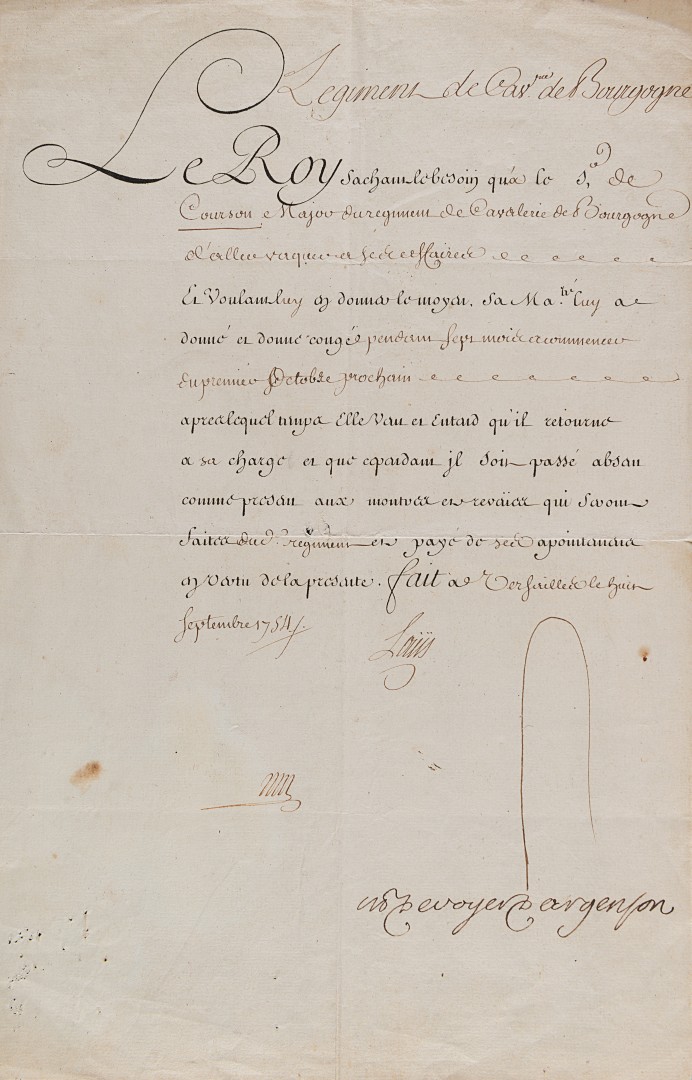 Regiment de Cav.rie de Bourgogne
Le Roy sachant le besoin qu'a le S.r de
Courson Major du regiment de Cavalerie de Bourgogne
d'aller vaquer a ses affaires
Et Voulant luy en donner le moyen. Sa Ma.té luy a
donné et donne congé pendant sept mois a commencer
du premier Octobre prochain
apres lequel temps Elle Veut et Entend qu'il retourne
a sa charge et que cependant jl soit passé absent
comme present aux montres et reveües qui seront
faites dud. regiment et payé de ses apointemens
en Vertu de la presente. fait a Versailles le huit
septembre 1754
Loüis
M de voyer d argenson